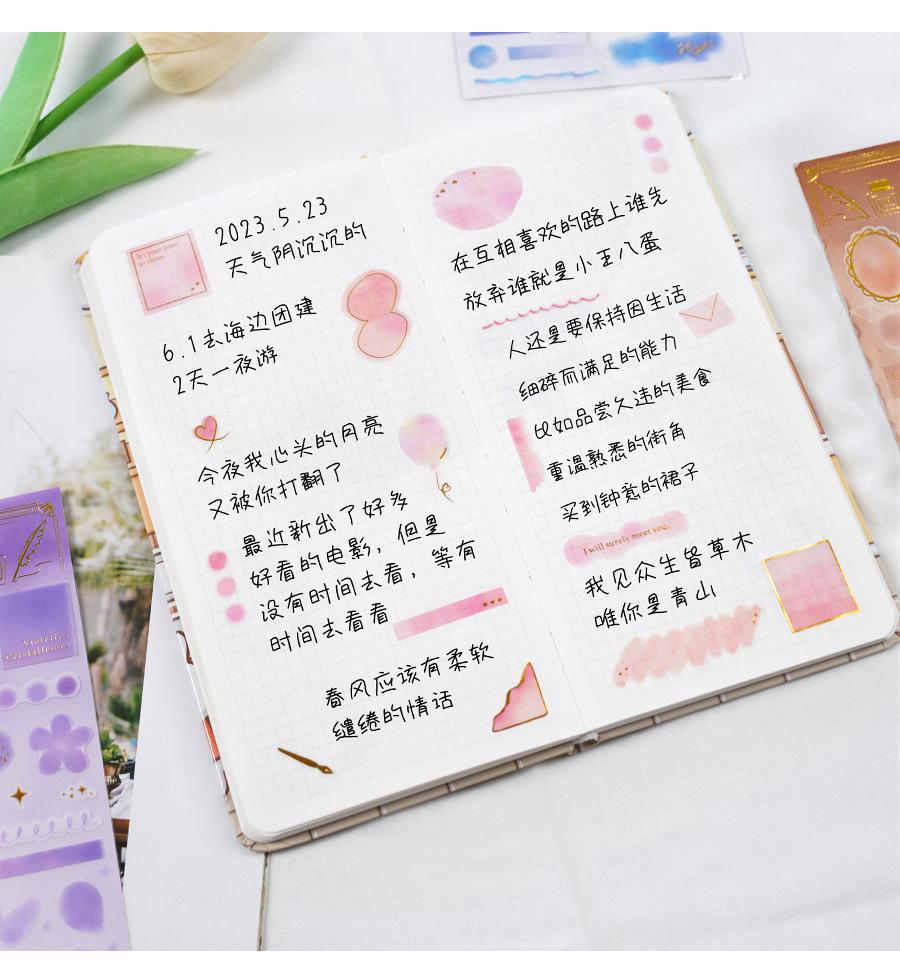 2023.5.23
天气阴沉沉的
It's your time
to shine.
6.1去海边团建
2天一夜游
今夜我心头的月亮
又被你打翻了
最近新出了好多
好看的电影，但是
没有时间去看，等有
时间去看看
春风应该有柔软
缱绻的情话
在互相喜欢的路上谁先
放弃谁就是小王八蛋
人还是要保持因生活
细碎而满足的能力
比如品尝久违的美食
重温熟悉的街角
买到钟意的裙子
I will surely meet you.
我见众生皆草木
唯你是青山
Violettes
Cristallisées